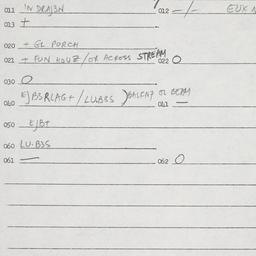 011 'N DRAJ3N 012 -/-
013 +
020 + GL PORCH
021 + FUN HOUZ/OR ACROSS STREAM 022 O
030 O
040 EJB3RLAG+/LUB3S) OR BEAM 041 —
050 EJB+
060 LU-B3S
061 — 062 O